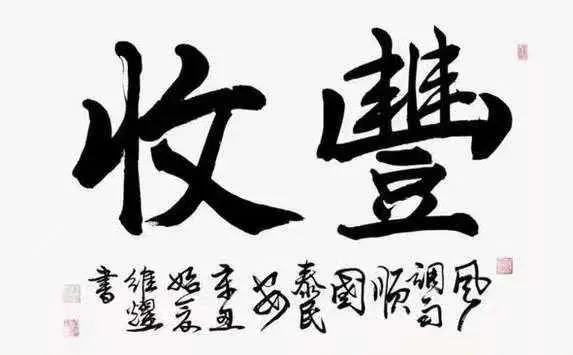 豐收
風調雨順國泰民安辛丑始夏維耀書